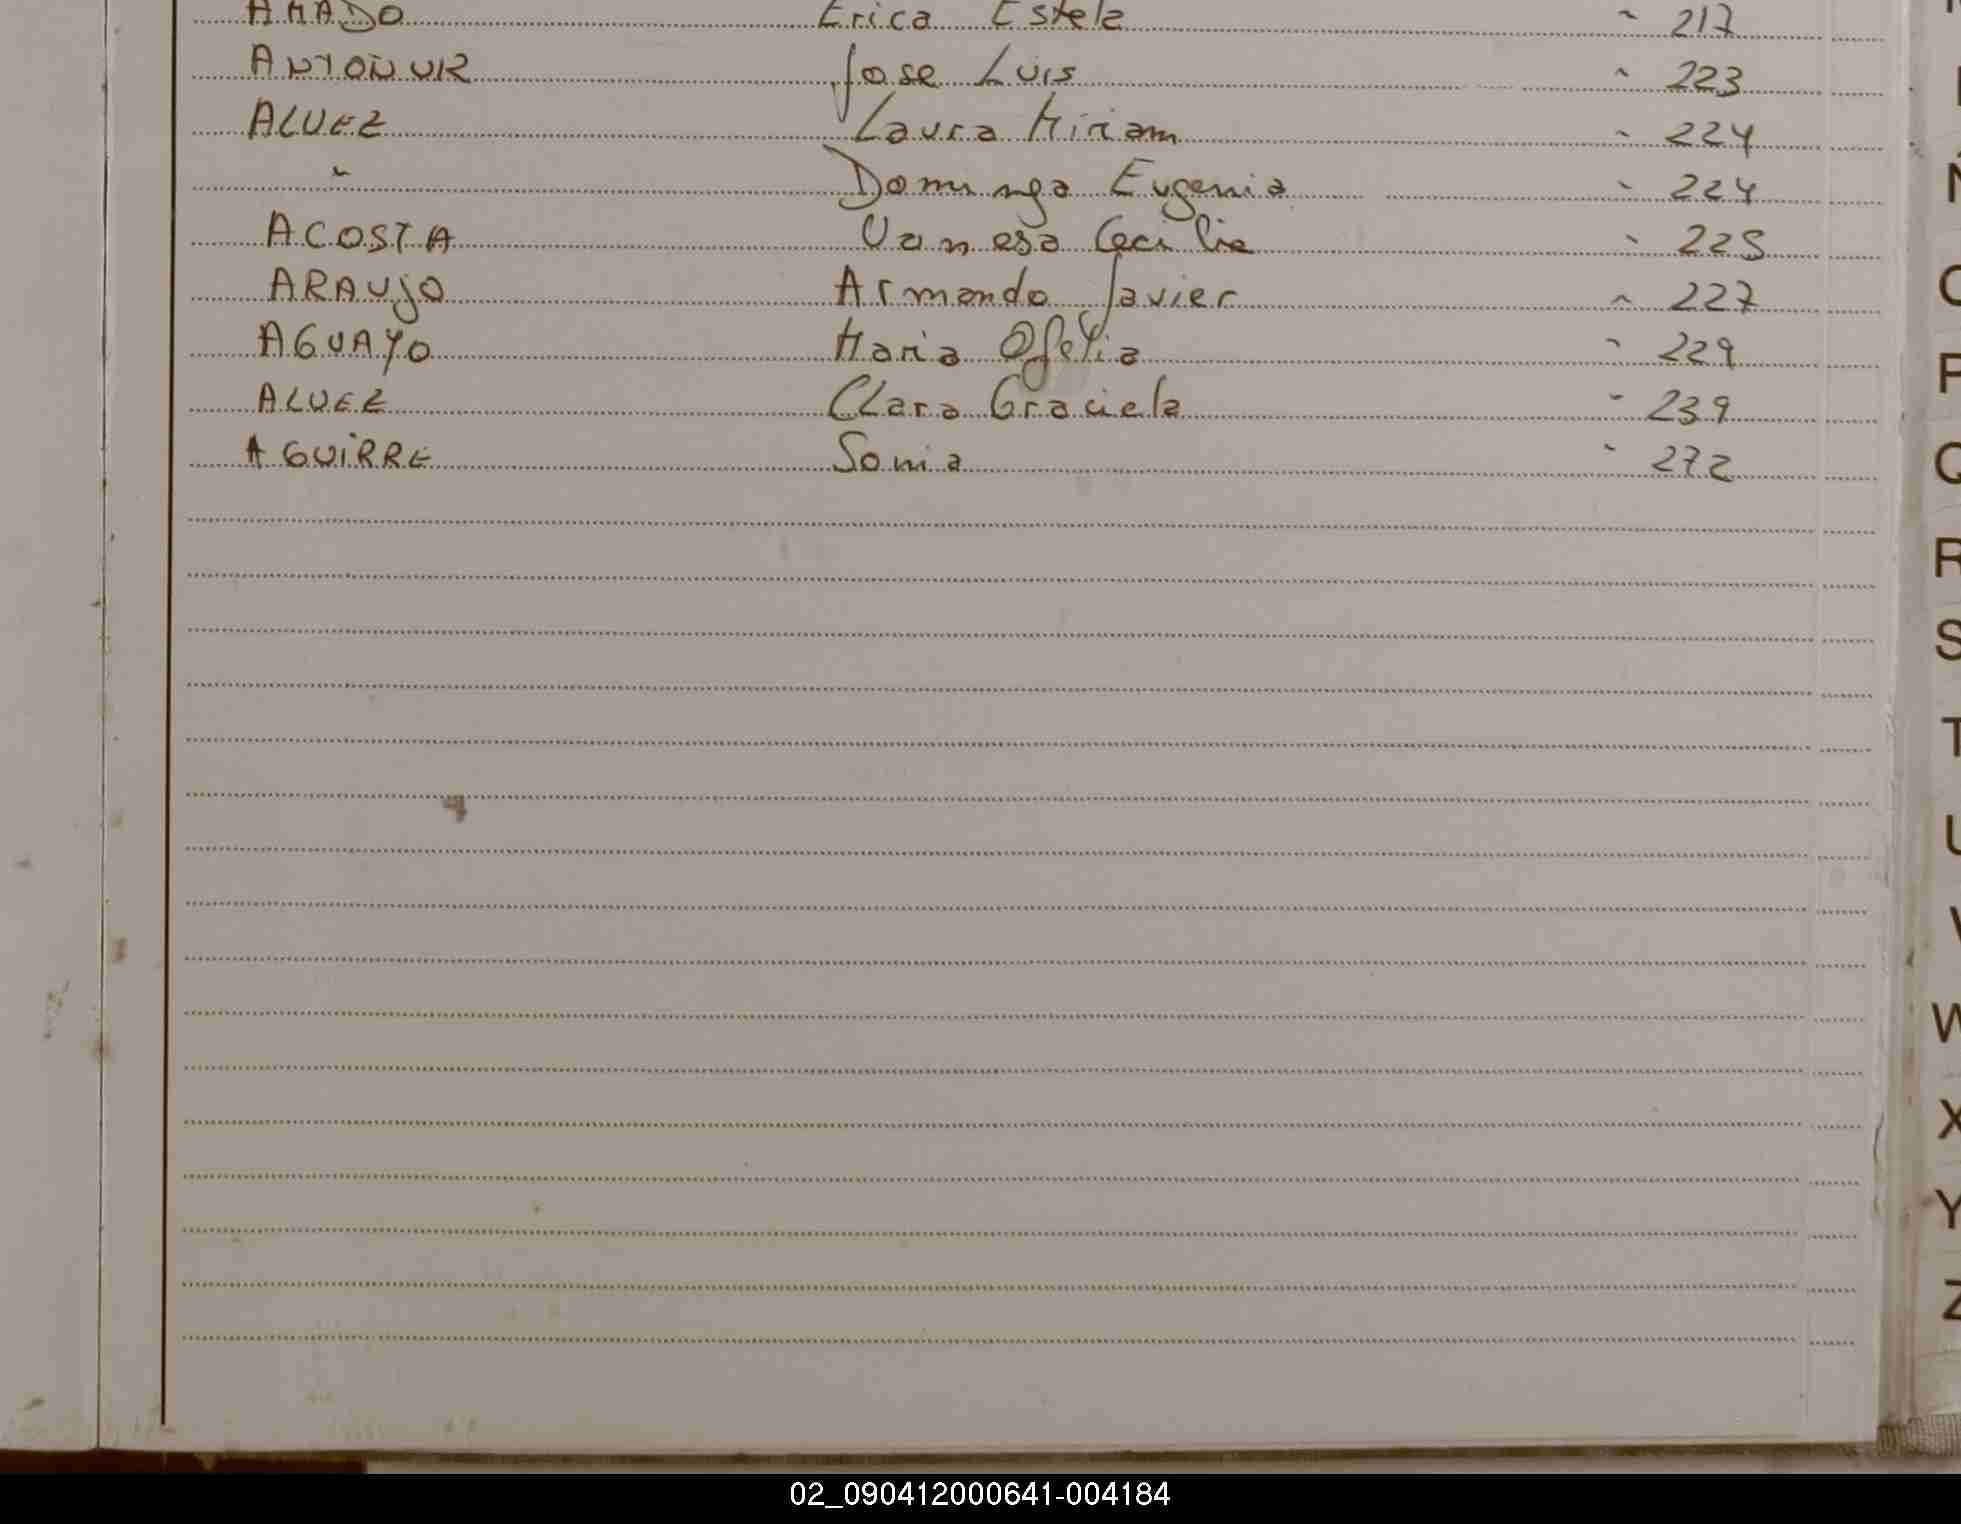 AMADO Erica Estela " 217
ANTOÑUR Jose Luis " 223
ALVEZ Laura Miriam " 224
" Dominga Eugenia " 224
ACOSTA Vanesa Cecilia " 225
ARAUJO Armando Javier " 227
AGUAYO Maria Ofelia " 229
ALVEZ Clara Graciela " 239
AGUIRRE Sonia " 272
Q
R
S
T
U
V
W
X
Y
Z
02_090412000641-004184